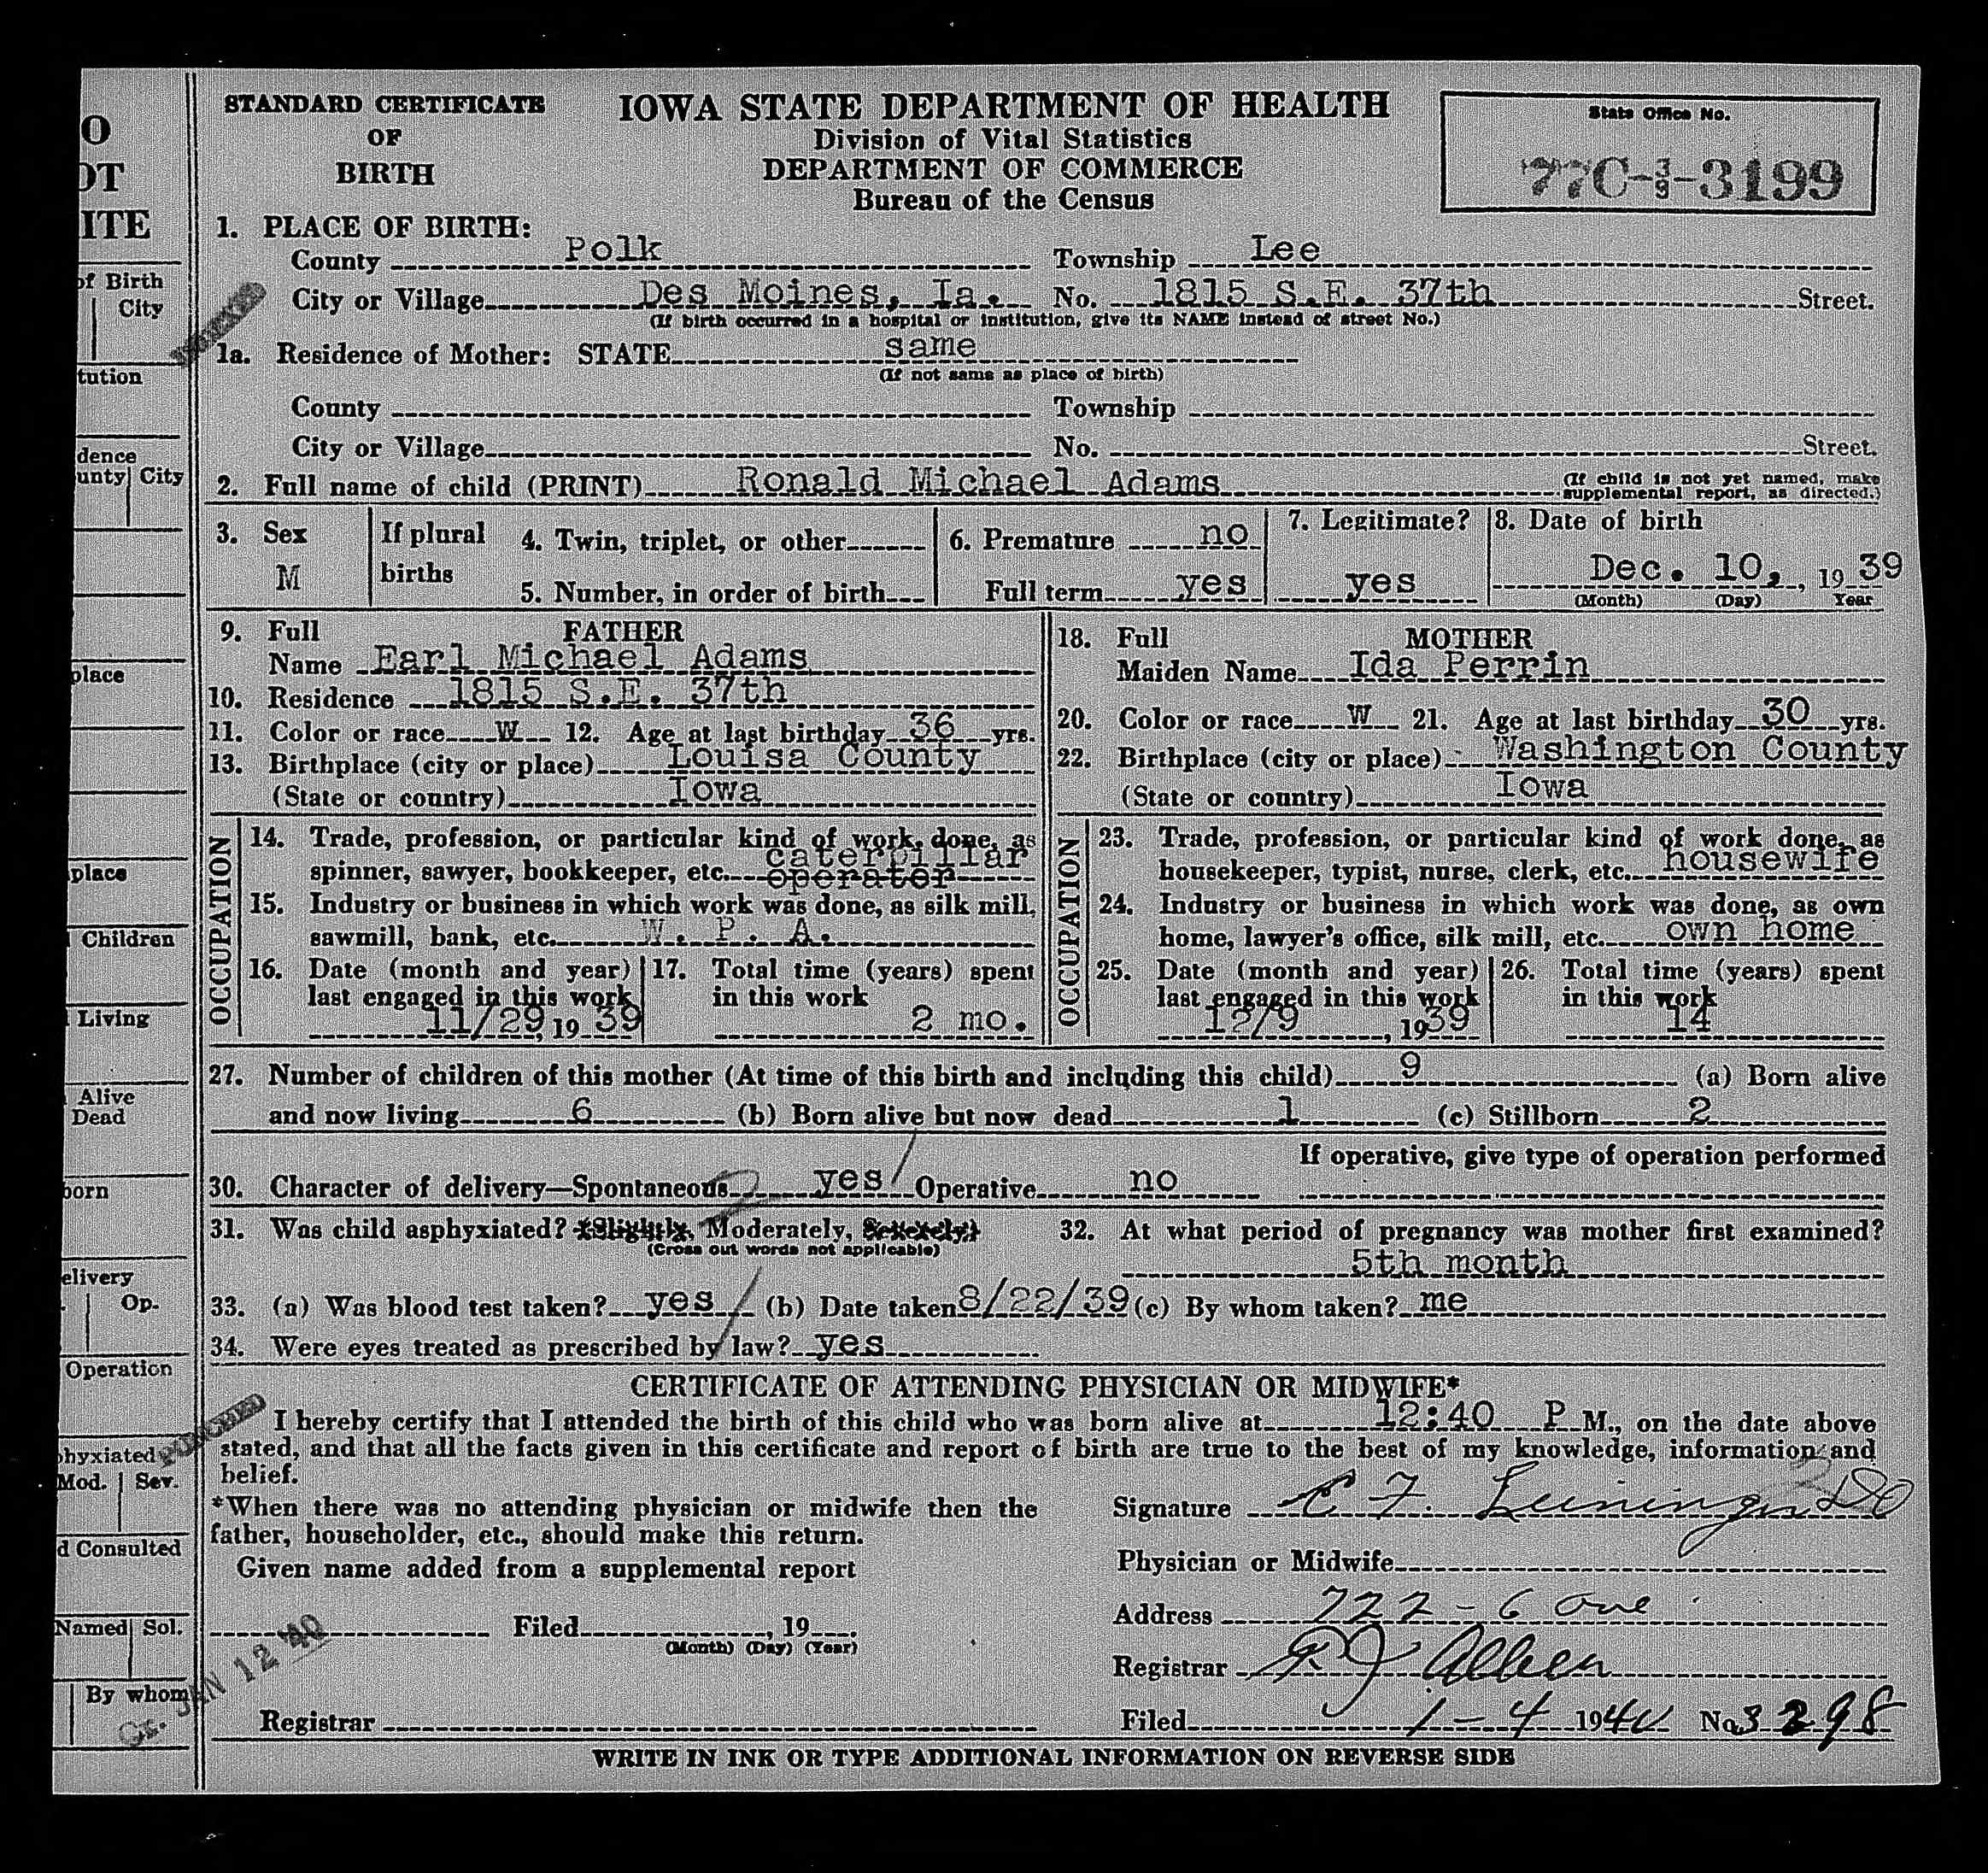 STANDARD CERTIFICATE
OF
BIRTH
IOWA STATE DEPARTMENT OF HEALTH
Division of Vital Statistics
DEPARTMENT OF COMMERCE
Bureau of the Census
State Office No.
77C-39-3199
O
OT
ITE
of Birth
City
tution
dence
unty City
place
place
Children
Living
Alive
Dead
born
elivery
Op.
Operation
phyxiated
Mod. Sev.
d Consulted
Named Sol.
By whom
INDEXED
1. PLACE OF BIRTH:
County Polk Township Lee
City or Village Des Moines, Ia. No. 1815 S.E. 37th Street.
(If birth occurred in a hospital or institution, give its NAME instead of street No.)
1a. Residence of Mother: STATE same
(If not same as place of birth)
County Township
City or Village No. Street.
2. Full name of child (PRINT) Ronald Michael Adams (If child is not yet named, make supplemental report, as directed.)
3. Sex M
If plural births
4. Twin, triplet, or other
5. Number, in order of birth
6. Premature no
Full term yes
7. Legitimate? yes
8. Date of birth
Dec. 10, 1939
(Month) (Day) Year
9. Full FATHER
Name Earl Michael Adams
10. Residence 1815 S.E. 37th
11. Color or race W 12. Age at last birthday 36 yrs.
13. Birthplace (city or place) Louisa County
(State or country) Iowa
OCCUPATION
14. Trade, profession, or particular kind of work done, as
spinner, sawyer, bookkeeper, etc. caterpillar
operator
15. Industry or business in which work was done, as silk mill,
sawmill, bank, etc. W. P. A.
16. Date (month and year)
last engaged in this work
11/29, 19 39
17. Total time (years) spent
in this work
2 mo.
18. Full MOTHER
Maiden Name Ida Perrin
20. Color or race W 21. Age at last birthday 30 yrs.
22. Birthplace (city or place) Washington County
(State or country) Iowa
OCCUPATION
23. Trade, profession, or particular kind of work done, as
housekeeper, typist, nurse, clerk, etc. housewife
24. Industry or business in which work was done, as own
home, lawyer's office, silk mill, etc. own home
25. Date (month and year)
last engaged in this work
12/9, 1939
26. Total time (years) spent
in this work
14
27. Number of children of this mother (At time of this birth and including this child) 9 (a) Born alive
and now living 6 (b) Born alive but now dead 1 (c) Stillborn 2
If operative, give type of operation performed
30. Character of delivery—Spontaneous yes Operative no
31. Was child asphyxiated? (Slightly, Moderately, Severely)
(Cross out words not applicable)
32. At what period of pregnancy was mother first examined?
5th month
33. (a) Was blood test taken? yes (b) Date taken 8/22/39 (c) By whom taken? me
34. Were eyes treated as prescribed by law? yes
CERTIFICATE OF ATTENDING PHYSICIAN OR MIDWIFE*
PUNCHED
I hereby certify that I attended the birth of this child who was born alive at 12:40 P M., on the date above
stated, and that all the facts given in this certificate and report of birth are true to the best of my knowledge, information and
belief.
*When there was no attending physician or midwife then the
father, householder, etc., should make this return.
Given name added from a supplemental report
Filed , 19
(Month) (Day) (Year)
JAN 12 '40
Registrar
Signature C F. Leininger DO
Physician or Midwife
Address 722 - 6 Ave
Registrar Alben
Filed 1 - 4 1940 No. 3298
WRITE IN INK OR TYPE ADDITIONAL INFORMATION ON REVERSE SIDE